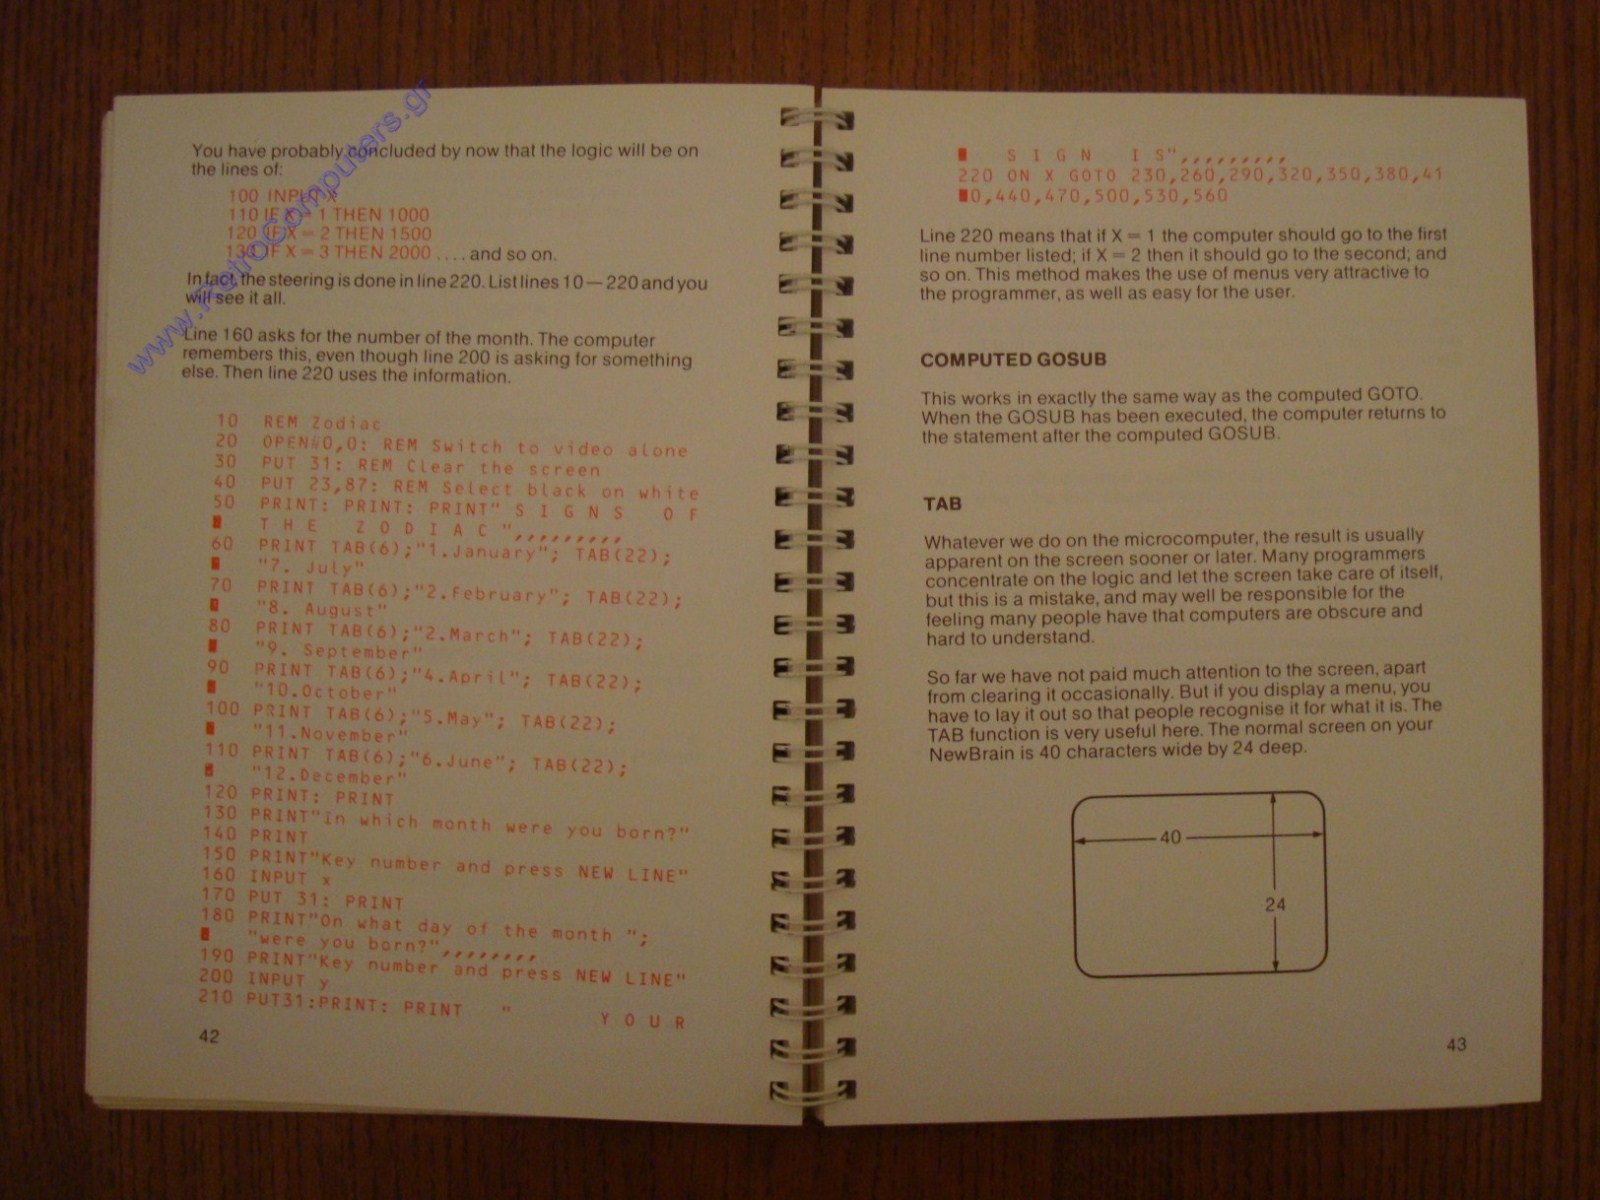 www.RetroComputers.gr
You have probably concluded by now that the logic will be on
the lines of:
100 INPUT X
110 IF X = 1 THEN 1000
120 IF X = 2 THEN 1500
130 IF X = 3 THEN 2000 .... and so on.
In fact, the steering is done in line 220. List lines 10 — 220 and you
will see it all.
Line 160 asks for the number of the month. The computer
remembers this, even though line 200 is asking for something
else. Then line 220 uses the information.
10 REM Zodiac
20 OPEN#0,0: REM Switch to video alone
30 PUT 31: REM Clear the screen
40 PUT 23,87: REM Select black on white
50 PRINT: PRINT: PRINT" S I G N S   O F
T H E   Z O D I A C",,,,,,,,,
60 PRINT TAB(6);"1.January"; TAB(22);
"7. July"
70 PRINT TAB(6);"2.February"; TAB(22);
"8. August"
80 PRINT TAB(6);"2.March"; TAB(22);
"9. September"
90 PRINT TAB(6);"4.April"; TAB(22);
"10.October"
100 PRINT TAB(6);"5.May"; TAB(22);
"11.November"
110 PRINT TAB(6);"6.June"; TAB(22);
"12.December"
120 PRINT: PRINT
130 PRINT"In which month were you born?"
140 PRINT
150 PRINT"Key number and press NEW LINE"
160 INPUT x
170 PUT 31: PRINT
180 PRINT"On what day of the month ";
"were you born?",,,,,,,,
190 PRINT"Key number and press NEW LINE"
200 INPUT y
210 PUT31:PRINT: PRINT   "   Y O U R
42
S I G N   I S",,,,,,,,,
220 ON X GOTO 230,260,290,320,350,380,41
0,440,470,500,530,560
Line 220 means that if X = 1 the computer should go to the first
line number listed; if X = 2 then it should go to the second; and
so on. This method makes the use of menus very attractive to
the programmer, as well as easy for the user.
COMPUTED GOSUB
This works in exactly the same way as the computed GOTO.
When the GOSUB has been executed, the computer returns to
the statement after the computed GOSUB.
TAB
Whatever we do on the microcomputer, the result is usually
apparent on the screen sooner or later. Many programmers
concentrate on the logic and let the screen take care of itself,
but this is a mistake, and may well be responsible for the
feeling many people have that computers are obscure and
hard to understand.
So far we have not paid much attention to the screen, apart
from clearing it occasionally. But if you display a menu, you
have to lay it out so that people recognise it for what it is. The
TAB function is very useful here. The normal screen on your
NewBrain is 40 characters wide by 24 deep.
40
24
43